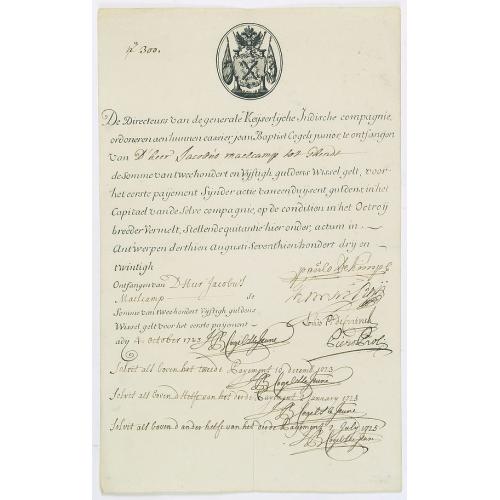 N.º 300.
De Directeurs van de generale Keyserlycke Indische compagnie,
ordoneren aen hunnen caerier Jean Baptist Cogels junior, te ontfangen
van D'heer Jacobus Maelcamp tot Ghendt
de Somme van tweehondert en Vyftigh guldens Wissel gelt, voor
het eerste payement Synder actie van een duysent guldens, in het
Capitael van de Selve compagnie, op de conditien in het Octroij
breeder Vermelt, Stellende quitantie hier onder, actum in
Antwerpen derthien Augusti Seventhienhondert dry en
twintigh
Ontfangen van D'Heer Jacobus
Maelcamp de
Somme van tweehondert Vyftigh guldens
Wissel gelt voor het eerste payement
ady 4 October 1723 JB Cogels le Jeune
Solvit als boven het tweede Payement 10 decemb 1723
JB Cogels le Jeune
Solvit als boven d'helft van het derde Payment January 1725
JB Cogels le Jeune
Solvit als boven d'ander helft van het derde Payement 2 July 1725
JB Cogels le Jeune